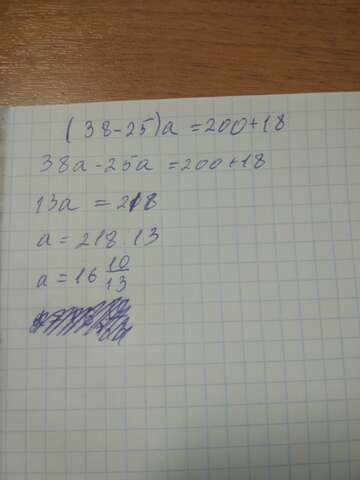 (38-25)a = 200+18
38a - 25a = 200+18
13a = 218
a = 218:13
a = 16 10/13